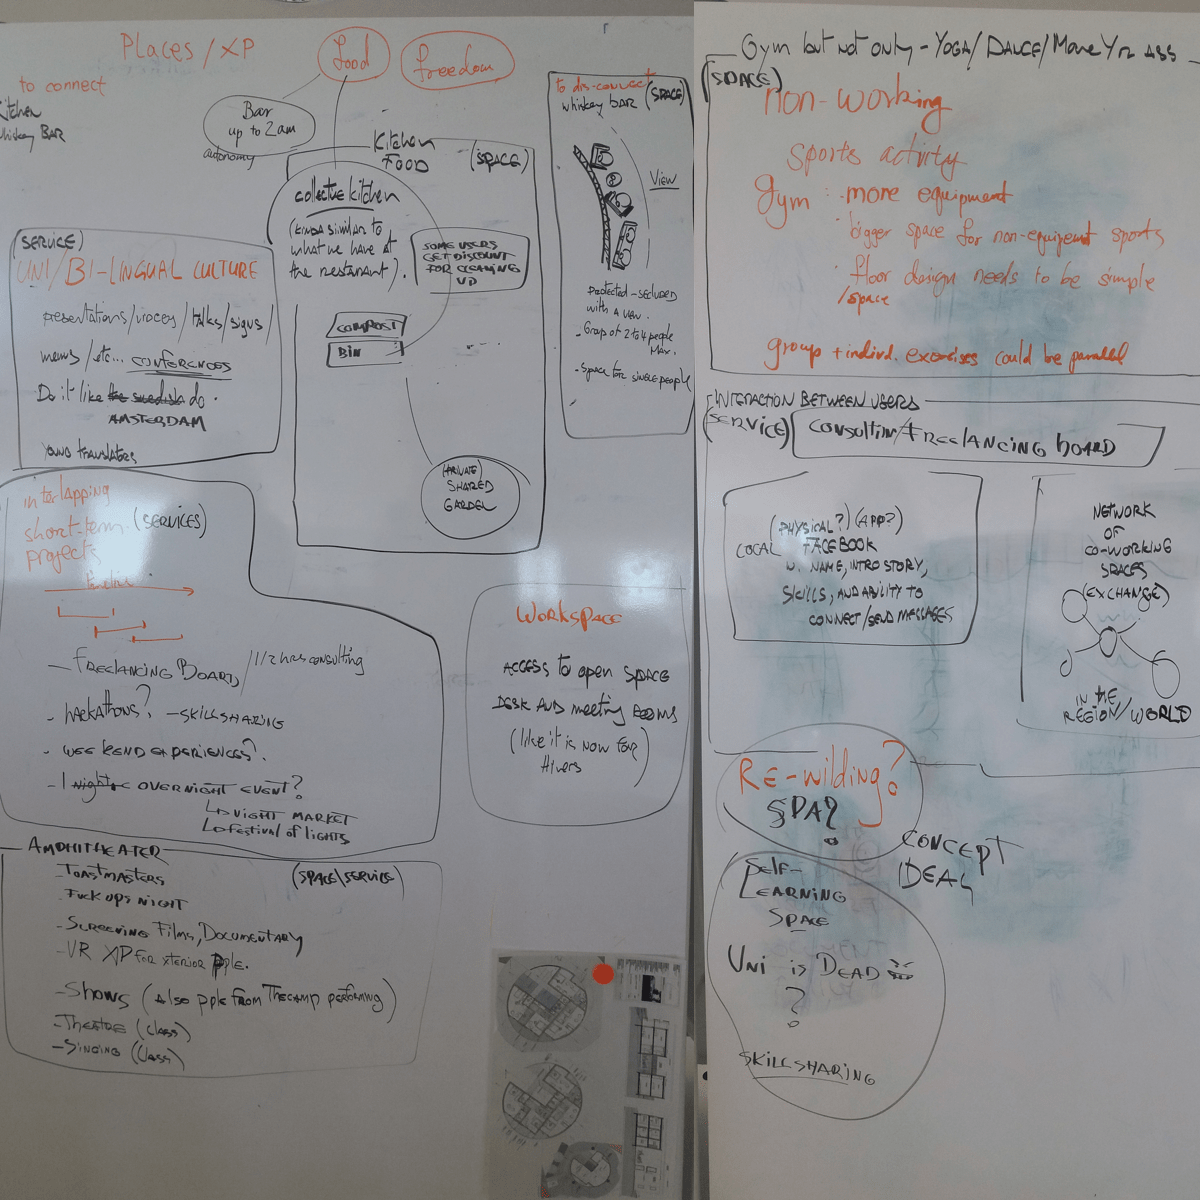 Places / XP
Food
freedom
to connect
Kitchen
Whiskey BAR
Bar
up to 2am
autonomy
Kitchen
FOOD
(SPACE)
collective kitchen
(KINDA similar to
what we have at
the restaurant).
SOME USERS
GET DISCOUNT
FOR CLEANING
UP
COMPOST
BIN
(PRIVATE)
SHARED
GARDEN
to dis-connect
whiskey bar (SPACE)
View
Protected-secluded
with a view.
- Group of 2 to 4 people
Max.
- Space for single people
(SERVICE)
UNI/BI-LINGUAL CULTURE
presentations/videos/talks/signs/
menus/etc... CONFERENCES
Do it like the swedish do.
AMSTERDAM
translators
interlapping
short-term (SERVICES)
projects
timeline
- FREELANCING BOARD/1/2 hrs consulting
- hackathons? - SKILLSHARING
- WEEKEND EXPERIENCES?
- 1 night OVERNIGHT EVENT?
NIGHT MARKET
FESTIVAL of LIGHTS
AMPHITHEATER
(SPACE\SERVICE)
- TOASTMASTERS
- FUCK UPS NIGHT
- SCREENING Films, DOCUMENTARY
- VR XP FOR XTERIOR PPLE.
- SHOWS (Also pple from THECAMP performing)
- THEATRE (CLASS)
- SINGING (CLASS)
WORKSPACE
ACCESS to open SPACE
DESK AND meeting ROOMS
(like it is now for
Hivers)
Gym but not only - YOGA/DANCE/Move Yr ASS
(SPACE)
non-working
sports activity
Gym: · more equipment
· bigger space for non-equipemt sports
· floor design needs to be simple
/space
group + individ. exercises could be parallel
INTERACTION BETWEEN USERS
(SERVICE)
CONSULTIN/FREELANCING BOARD
(PHYSICAL?) (APP?)
LOCAL FACEBOOK
W. NAME, INTRO STORY,
SKILLS, AND ABILITY TO
CONNECT/SEND MESSAGES
NETWORK
OF
CO-WORKING
SPACES
(EXCHANGE)
IN THE
REGION/WORLD
RE-wilding?
SPA?
CONCEPT
IDEAS
SELF-
LEARNING
SPACE
UNI is DEAD
?
SKILLSHARING